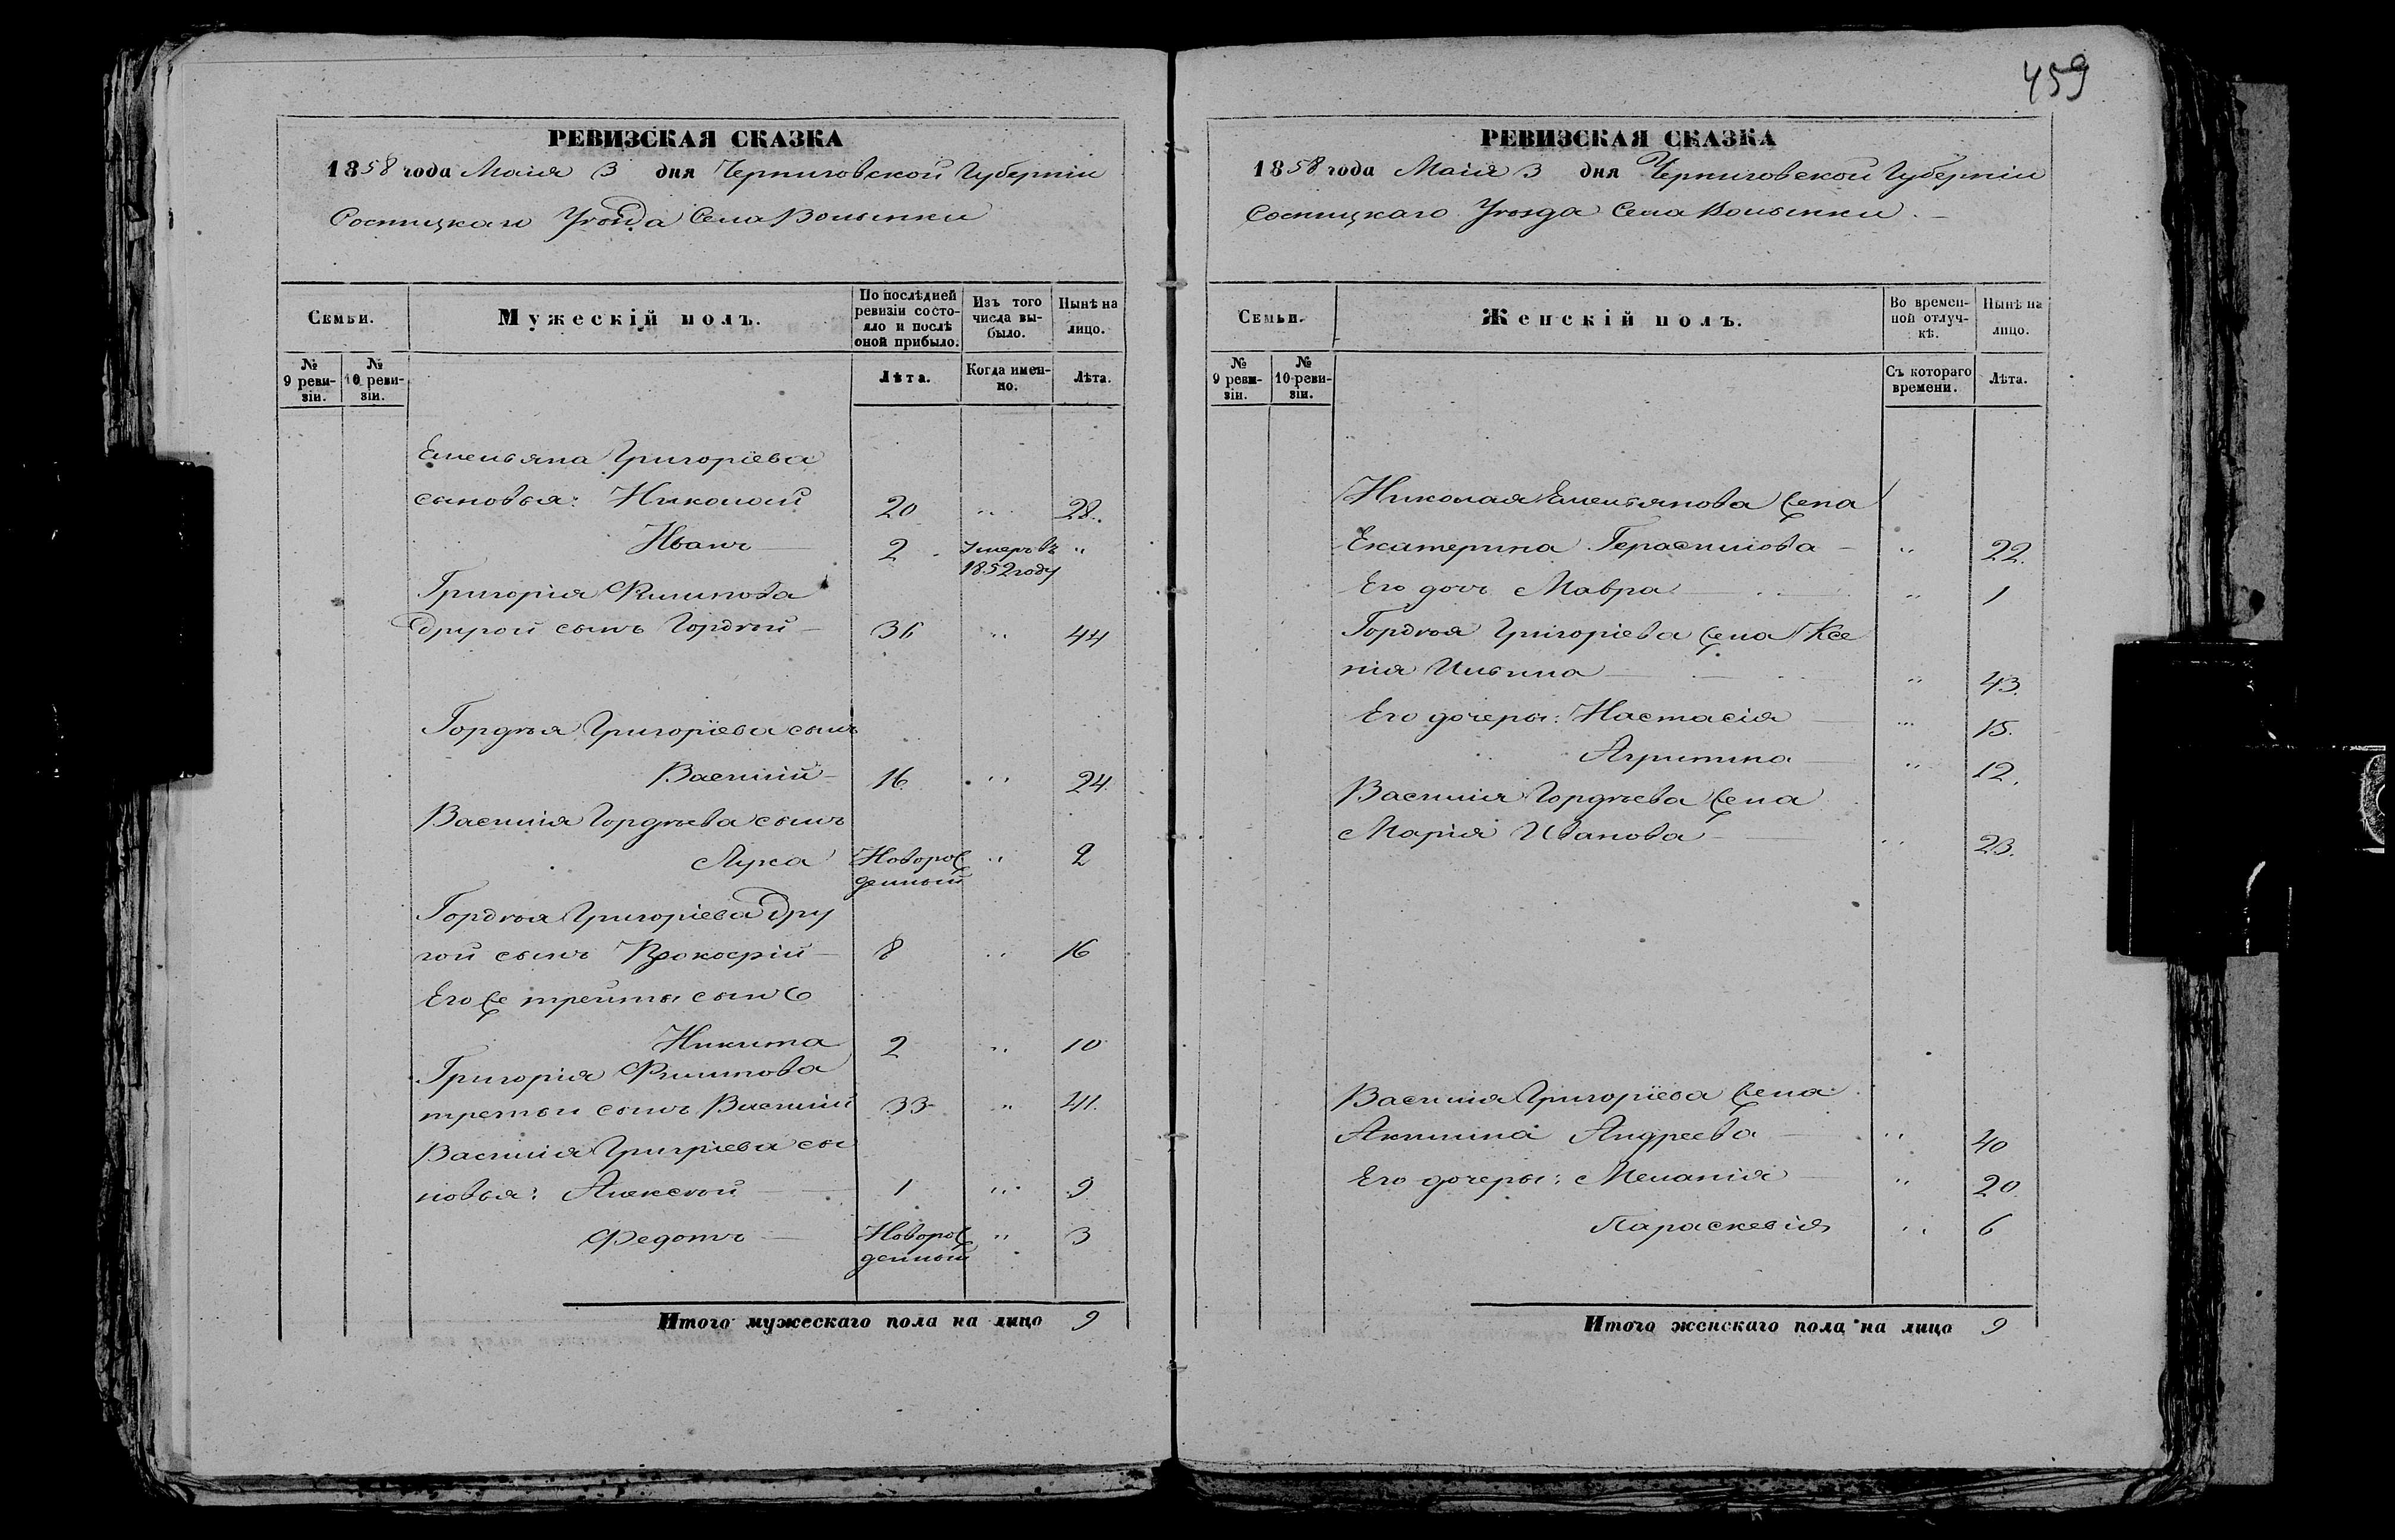 459
РЕВИЗСКАЯ СКАЗКА
1858 года Маія 3 дня Черниговской Губерніи
Сосницкаго Уѣзда Села Волынки
Семьи.
Мужескій полъ.
По послѣдней ревизіи состояло и послѣ оной прибыло.
Изъ того числа выбыло.
Нынѣ на лицо.
№ 9 ревизіи.
№ 10 ревизіи.
Лѣта.
Когда именно.
Лѣта.
Емельяна Григоріева
сыновья: Николай 20 " 28.
Иванъ 2 Умеръ въ 1852 году "
Григорія Филипова
другой сынъ Гордѣй 36 " 44
Гордѣя Григоріева сынъ
Василій 16 " 24
Василія Гордѣева сынъ
Лука Новорожденный " 2
Гордѣя Григоріева дру
гой сынъ Прокофій 8 " 16
Его же третій сынъ
Никита 2 " 10
Григорія Филипова
третьи сынъ Василій 33 " 41.
Василія Григріева сы
новья: Алексѣй 1 " 9
Федотъ Новорожденный " 3
Итого мужескаго пола на лицо 9
РЕВИЗСКАЯ СКАЗКА
1858 года Маія 3 дня Черниговской Губерніи
Сосницкаго Уѣзда Села Волынки.
Семьи.
Женскій полъ.
Во временной отлучкѣ.
Нынѣ на лицо.
№ 9 ревизіи.
№ 10 ревизіи.
Съ котораго времени.
Лѣта.
Николая Емельянова жена
Екатерина Герасимова " 22.
Его дочь Мавра " 1
Гордѣя Григоріева жена Ксе
нія Ильина " 43.
Его дочеры: Настасія " 15.
Агрипина " 12.
Василія Гордѣева жена
Марія Иванова " 23.
Василія Григоріева жена
Акилина Андреева " 40
Его дочеры: Меланія " 20
Параскевія " 6
Итого женскаго пола на лицо 9